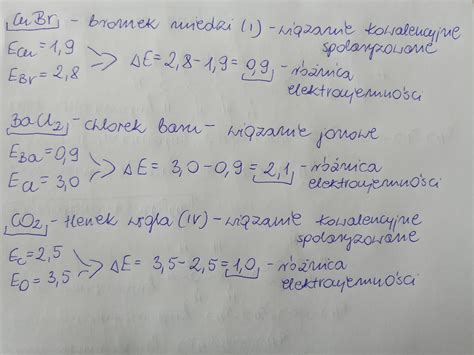 CuBr - bromek miedzi (I) - wiązanie kowalencyjne
spolaryzowane
ECu = 1,9
EBr = 2,8
> ΔE = 2,8 - 1,9 = 0,9 - różnica
elektroujemności
BaCl2 - chlorek baru - wiązanie jonowe
EBa = 0,9
ECl = 3,0
> ΔE = 3,0 - 0,9 = 2,1 - różnica
elektroujemności
CO2 - tlenek węgla (IV) - wiązanie kowalencyjne
spolaryzowane
EC = 2,5
EO = 3,5
> ΔE = 3,5 - 2,5 = 1,0 - różnica
elektroujemności